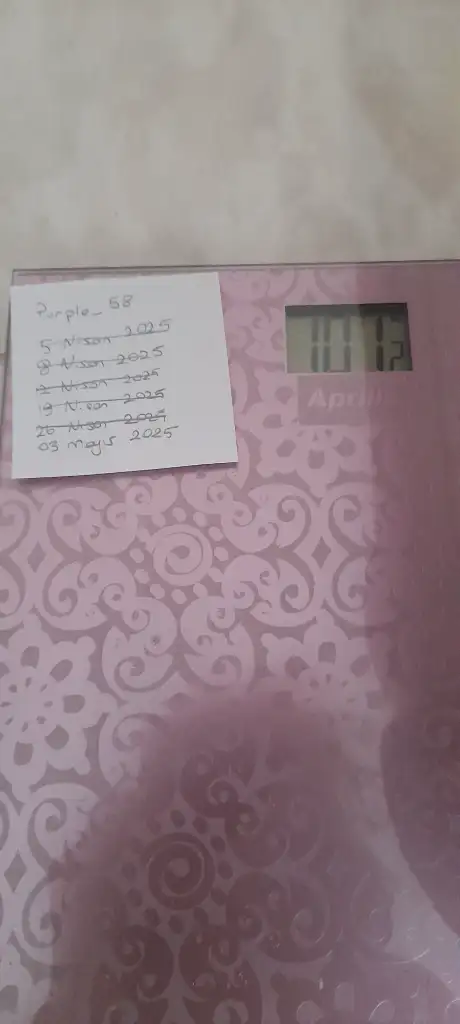 Purple_58
5 Nisan 2025
8 Nisan 2025
12 Nisan 2025
19 Nisan 2025
26 Nisan 2025
03 mayıs 2025
April